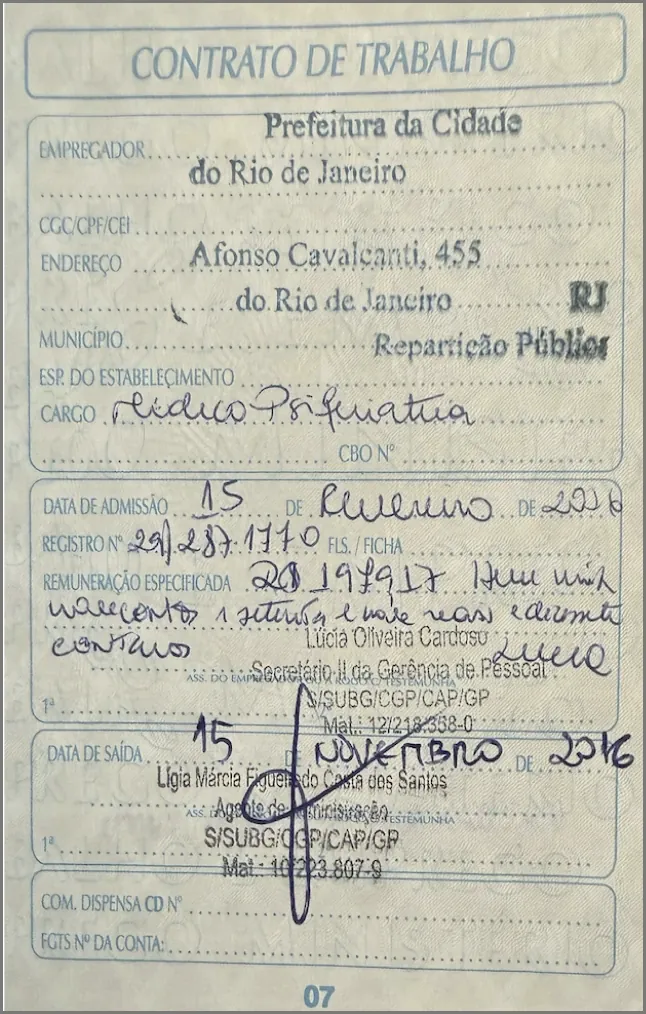 CONTRATO DE TRABALHO
Prefeitura da Cidade
EMPREGADOR
do Rio de Janeiro
CGC/CPF/CEI
ENDEREÇO Afonso Cavalcanti, 455
do Rio de Janeiro RJ
MUNICÍPIO Repartição Pública
ESP. DO ESTABELECIMENTO
CARGO Médico Psiquiatria
CBO Nº
DATA DE ADMISSÃO 15 DE Fevereiro DE 2016
REGISTRO Nº 29/287.1770 FLS. / FICHA
REMUNERAÇÃO ESPECIFICADA
e
centavos
Lúcia Oliveira Cardoso
Secretário II da Gerência de Pessoal
ASS. DO EMPREGADOR OU A ROGO C/TESTEMUNHA
1ª S/SUBG/CGP/CAP/GP
Mat.: 12/218.358-0
DATA DE SAÍDA 15 DE NOVEMBRO DE 2016
Lígia Márcia Figueiredo Costa dos Santos
Agente de Administração
ASS. DO EMPREGADOR OU A ROGO C/TESTEMUNHA
1ª S/SUBG/CGP/CAP/GP
Mat.: 10/223.807-9
COM. DISPENSA CD Nº
FGTS Nº DA CONTA:
07